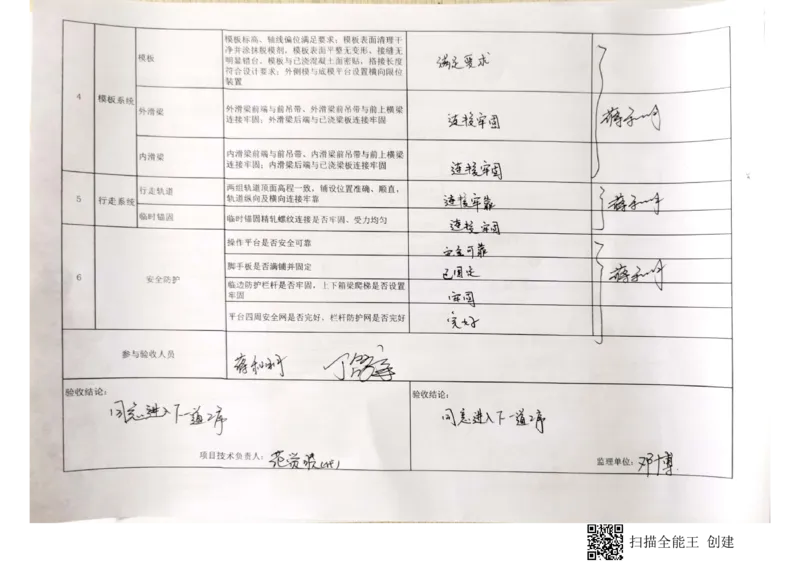 4
模板系统
模板
模板标高、轴线偏位满足要求；模板表面清理干
净并涂抹脱模剂，模板表面平整无变形，接缝无
明显错台，模板与已浇混凝土面密贴，搭接长度
符合设计要求；外侧模与底模平台设置横向限位
装置
满足要求
外滑梁
外滑梁前端与前吊带、外滑梁前吊带与前上横梁
连接牢固；外滑梁后端与已浇梁板连接牢固
连接牢固
内滑梁
内滑梁前端与前吊带、内滑梁前吊带与前上横梁
连接牢固；内滑梁后端与已浇梁板连接牢固
连接牢固
5
行走系统
行走轨道
两组轨道顶面高程一致，铺设位置准确、顺直，
轨道纵向及横向连接牢靠
连接牢靠
临时锚固
临时锚固精轧螺纹连接是否牢固、受力均匀
连接牢固
6
安全防护
操作平台是否安全可靠
安全可靠
脚手板是否满铺并固定
已固定
临边防护栏杆是否牢固，上下箱梁爬梯是否设置
牢固
牢固
平台四周安全网是否完好，栏杆防护网是否完好
完好
参与验收人员
验收结论：
同意进入下一道工序
项目技术负责人：
验收结论：
同意进入下一道工序
监理单位：邓博
扫描全能王 创建